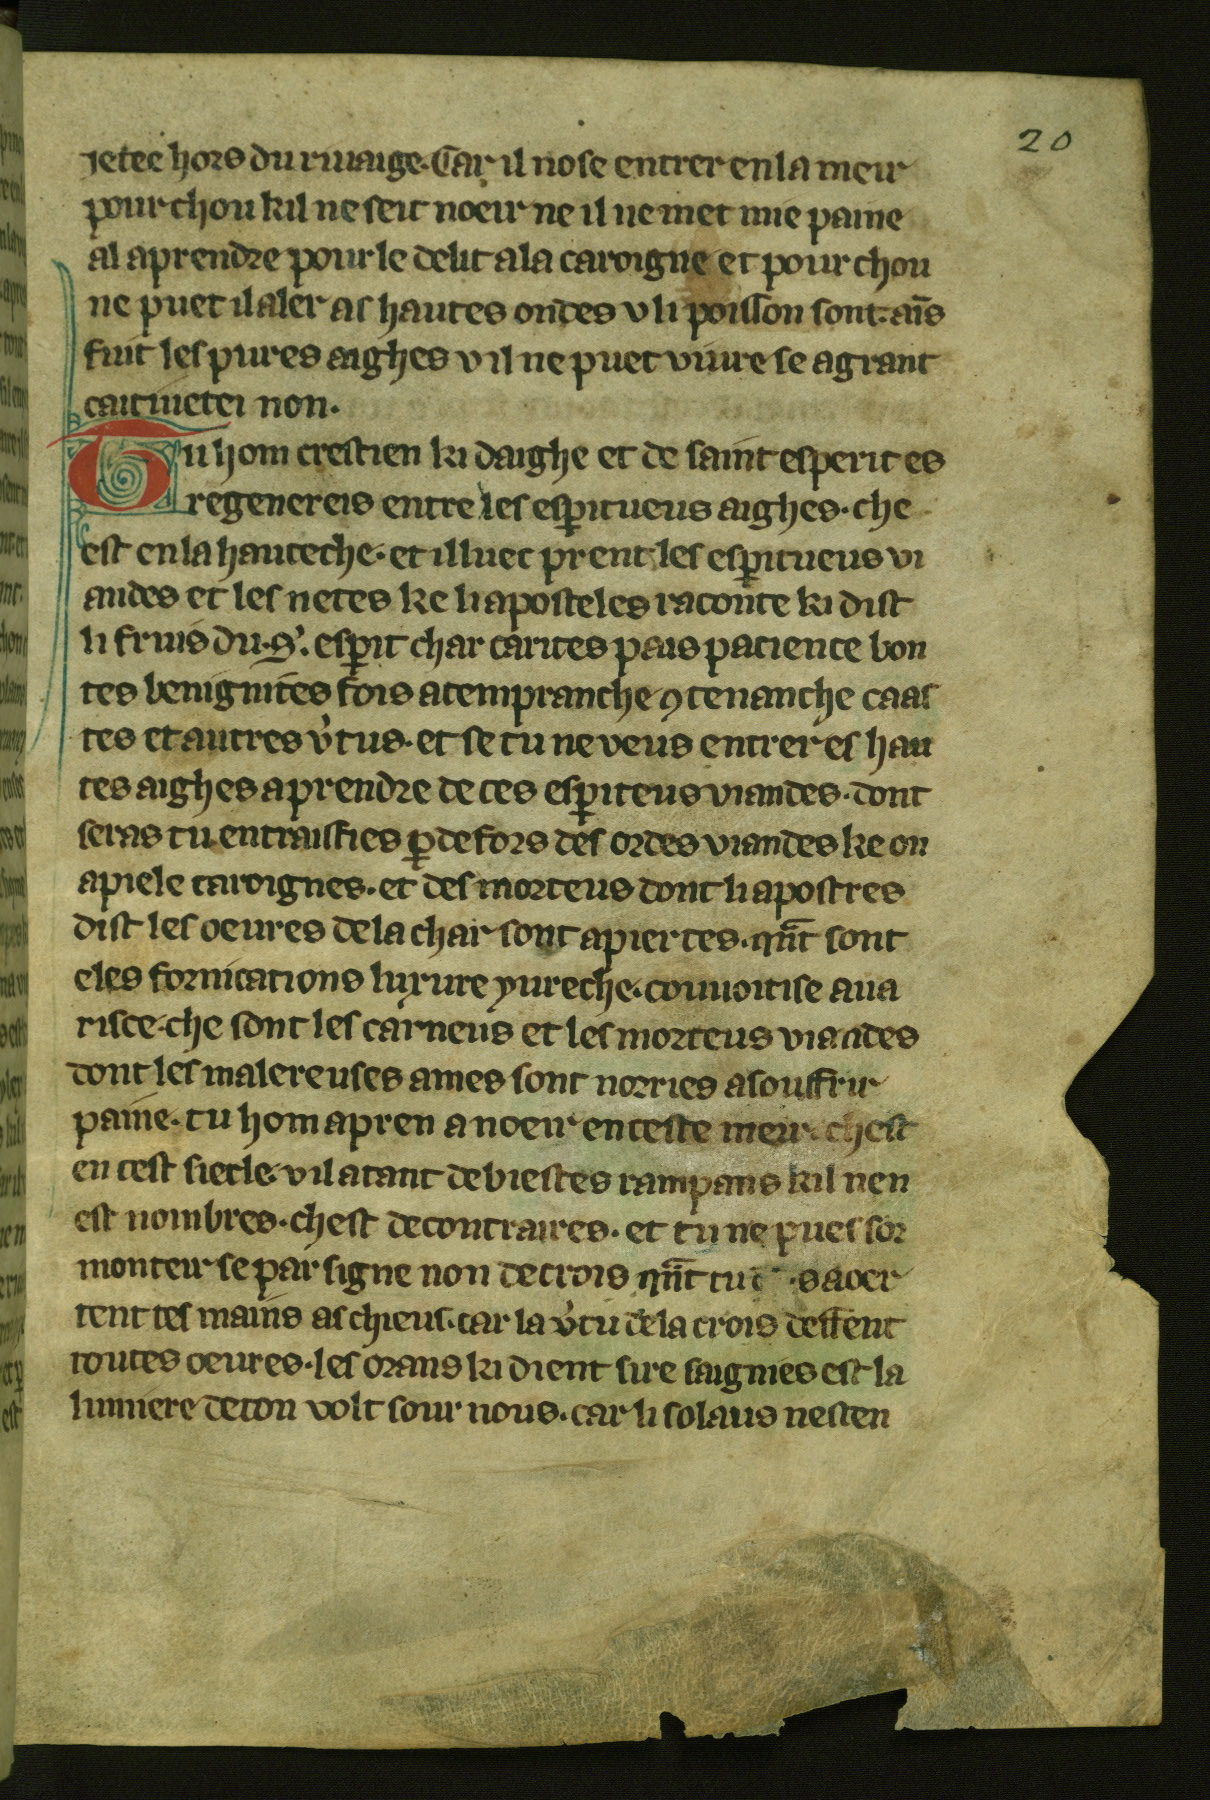 20
jetee hors du riuaige. Car il nose entrer en la meir
pour chou kil ne seit noeir ne il ne met mie paine
al aprendre pour le delit a la caroigne et pour chou
ne puet il aler as hautes ondes v li poisson sont. ais̄
fuit les pures aighes v il ne puet viure se a grant
caitiuetei non.
Tu hom crestien ki daighe et de saint esperit es
regenereis entre les esꝑitueus aighes. che
est en la hauteche. et illuec prent les esꝑitueus vi
andes et les netes ke li aposteles raconte ki dist
li fruis du .sͭ. esꝑit char carites pais patience bon
tes benignites fois atempranche ꝯtenanche caas
tes et autres v̾tus. et se tu ne veus entrer es hau
tes aighes aprendre de ces esꝑiteus viandes. dont
seras tu entraisties ꝑ defors des ordes viandes ke on
apiele caroignes. et des morteus dont li apostres
dist les oeures de la char sont apiertes. qn̄t sont
eles fornications luxure yureche. couuoitise aua
risce. che sont les carneus et les morteus viandes
dont les malereuses ames sont norries a souffrir
paine. tu hom apren a noeir en ceste meir. chest
en cest siecle. v il a tant de biestes rampans kil nen
est nombres. chest de contraires. et tu ne pues sor
monteir se par signe non de crois qn̄t tu aoer
tent tes mains as chieus. car la v̾tu de la crois deffent
toutes oeures. les orans ki dient sire saignies est la
lumiere de ton volt sour nous. car li solaus nesten